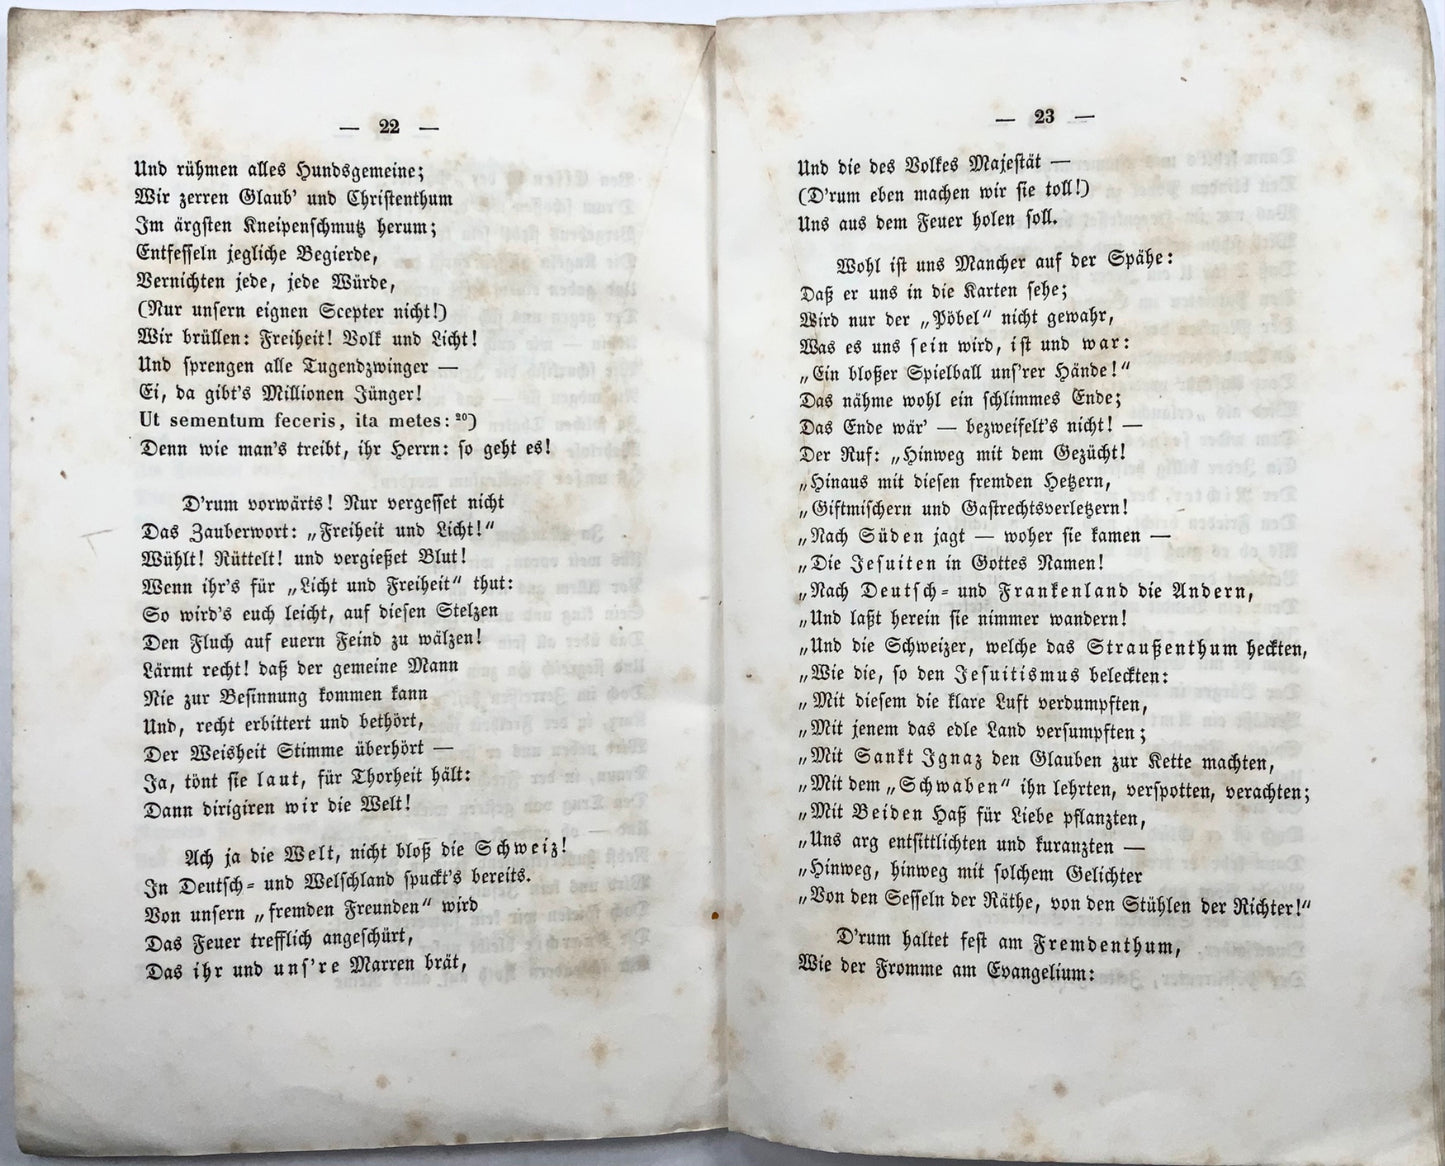 — 22 —
Und rühmen alles Hundsgemeine;
Wir zerren Glaub' und Christenthum
Im ärgsten Kneipenschmutz herum;
Entfesseln jegliche Begierde,
Vernichten jede, jede Würde,
(Nur unsern eignen Scepter nicht!)
Wir brüllen: Freiheit! Volk und Licht!
Und sprengen alle Tugendzwinger —
Ei, da gibt's Millionen Jünger!
Ut sementum feceris, ita metes: ²⁰)
Denn wie man's treibt, ihr Herrn: so geht es!
D'rum vorwärts! Nur vergesset nicht
Das Zauberwort: „Freiheit und Licht!"
Wühlt! Rüttelt! und vergießet Blut!
Wenn ihr's für „Licht und Freiheit" thut:
So wird's euch leicht, auf diesen Stelzen
Den Fluch auf euern Feind zu wälzen!
Lärmt recht! daß der gemeine Mann
Nie zur Besinnung kommen kann
Und, recht erbittert und bethört,
Der Weisheit Stimme überhört —
Ja, tönt sie laut, für Thorheit hält:
Dann dirigiren wir die Welt!
Ach ja die Welt, nicht bloß die Schweiz!
In Deutsch- und Welschland spuckt's bereits.
Von unsern „fremden Freunden" wird
Das Feuer trefflich angeschürt,
Das ihr und uns're Marren brät,
— 23 —
Und die des Volkes Majestät —
(D'rum eben machen wir sie toll!)
Uns aus dem Feuer holen soll.
Wohl ist uns Mancher auf der Spähe:
Daß er uns in die Karten sehe;
Wird nur der „Pöbel" nicht gewahr,
Was es uns sein wird, ist und war:
„Ein bloßer Spielball uns'rer Hände!"
Das nähme wohl ein schlimmes Ende;
Das Ende wär' — bezweifelt's nicht! —
Der Ruf: „Hinweg mit dem Gezücht!
„Hinaus mit diesen fremden Hetzern,
„Giftmischern und Gastrechtsverletzern!
„Nach Süden jagt — woher sie kamen —
„Die Jesuiten in Gottes Namen!
„Nach Deutsch- und Frankenland die Andern,
„Und laßt herein sie nimmer wandern!
„Und die Schweizer, welche das Straußenthum heckten,
„Wie die, so den Jesuitismus beleckten:
„Mit diesem die klare Luft verdumpften,
„Mit jenem das edle Land versumpften;
„Mit Sankt Ignaz den Glauben zur Kette machten,
„Mit dem „Schwaben" ihn lehrten, verspotten, verachten;
„Mit Beiden Haß für Liebe pflanzten,
„Uns arg entsittlichten und kuranzten —
„Hinweg, hinweg mit solchem Gelichter
„Von den Sesseln der Räthe, von den Stühlen der Richter!"
D'rum haltet fest am Fremdenthum,
Wie der Fromme am Evangelium: